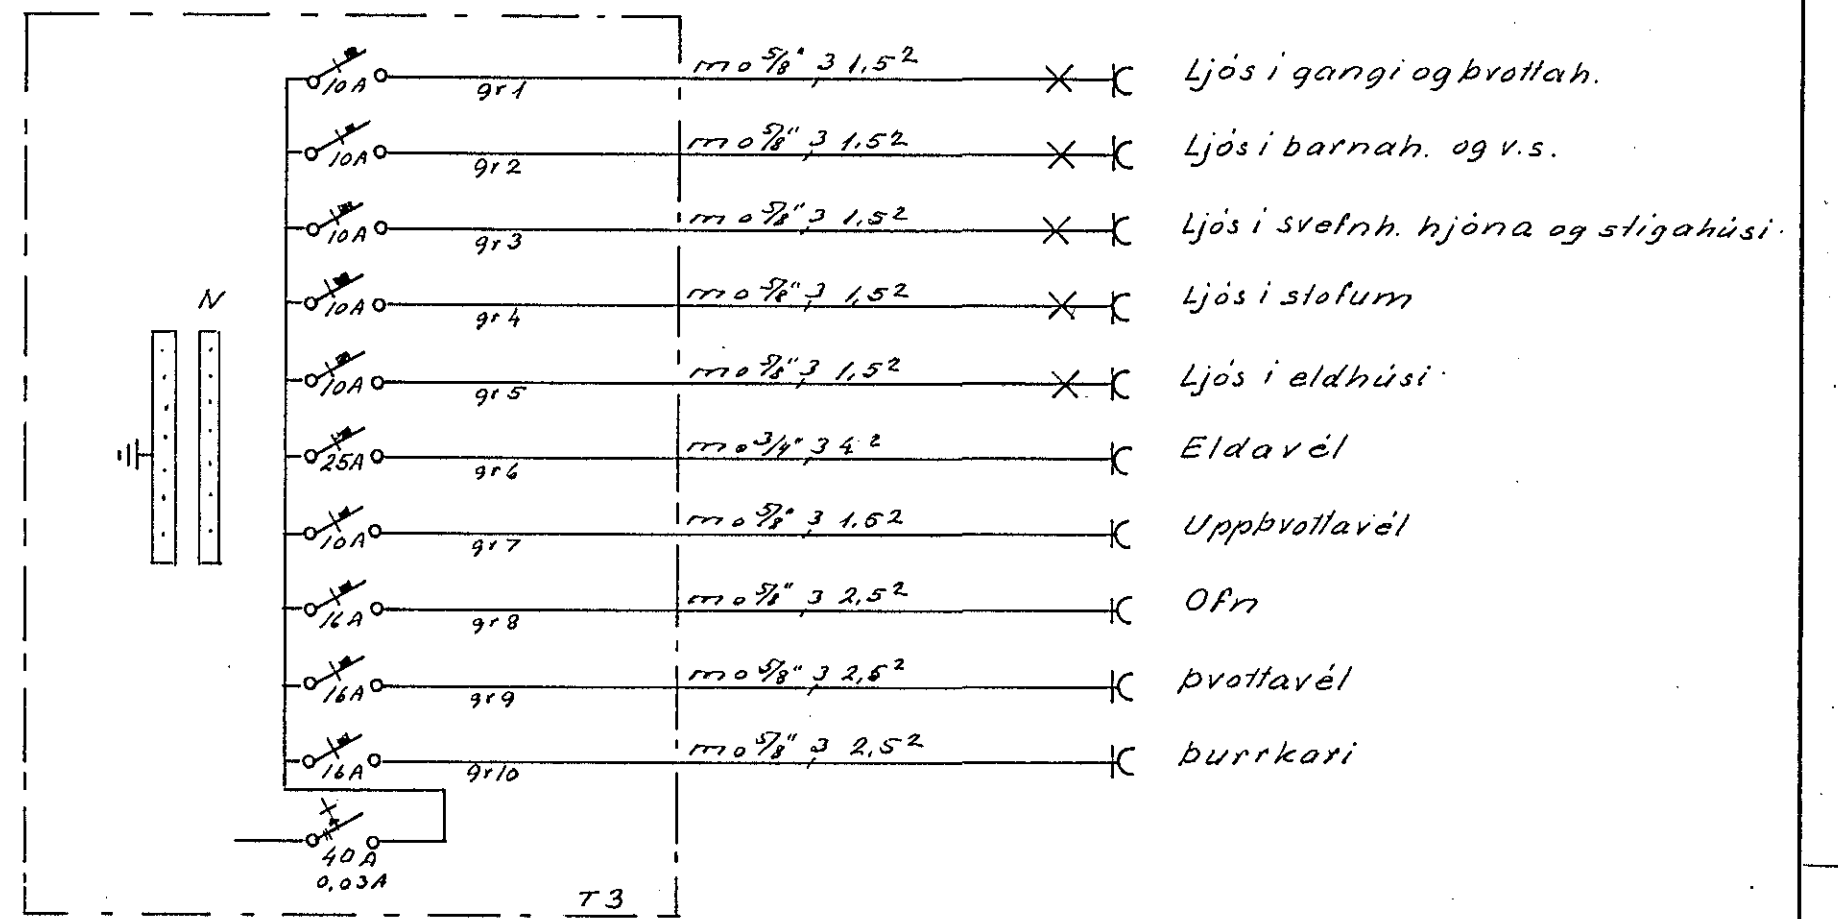 10A gr1 mo 5/8", 3 1,5² Ljós í gangi og þvottah.
10A gr2 mo 5/8", 3 1,5² Ljós í barnah. og v.s.
10A gr3 mo 5/8", 3 1,5² Ljós í svefnh. hjóna og stigahúsi.
N
10A gr4 mo 5/8", 3 1,5² Ljós í stofum
10A gr5 mo 5/8", 3 1,5² Ljós í eldhúsi
25A gr6 mo 3/4", 3 4² Eldavél
10A gr7 mo 5/8", 3 1,5² Uppþvottavél
16A gr8 mo 5/8", 3 2,5² Ofn
16A gr9 mo 5/8", 3 2,5² Þvottavél
16A gr10 mo 5/8", 3 2,5² Þurrkari
40A
0,03A
T3